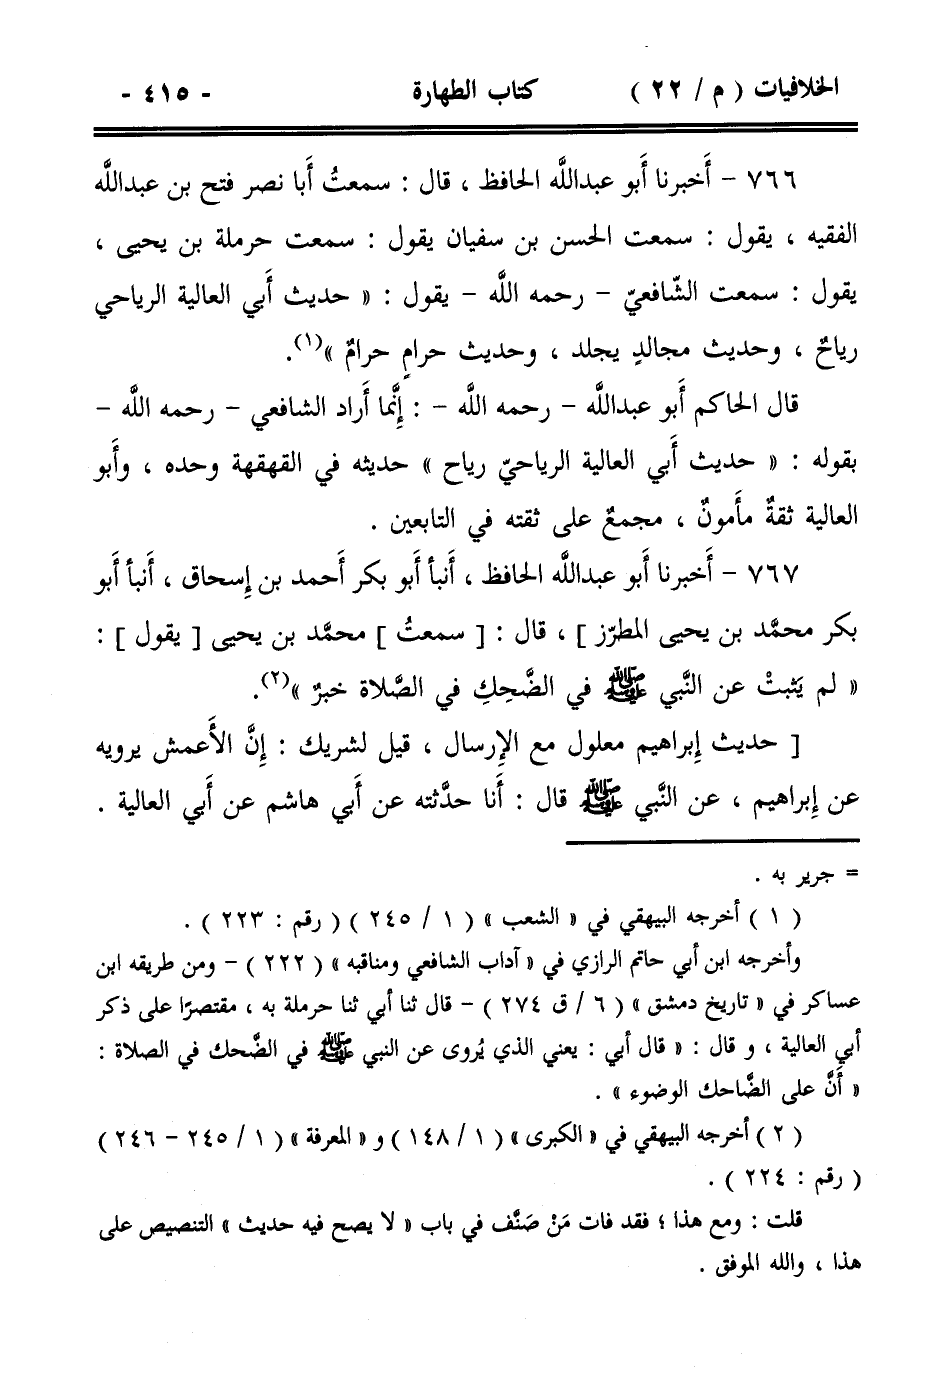 الخلافيات ( م / ٢٢ ) كتاب الطهارة - ٤١٥ -
٧٦٦ - أَخبرنا أَبو عبداللَّه الحافظ ، قال : سمعتُ أَبا نصر فتح بن عبداللَّه
الفقيه ، يقول : سمعت الحسن بن سفيان يقول : سمعت حرملة بن يحيى ،
يقول : سمعت الشّافعيّ - رحمه اللَّه - يقول : « حديث أَبي العالية الرياحي
رياحٌ ، وحديث مجالدٍ يجلد ، وحديث حرامٍ حرامٌ »(١).
قال الحاكم أَبو عبداللَّه - رحمه اللَّه - : إِنَّما أَراد الشافعي - رحمه اللَّه -
بقوله : « حديث أَبي العالية الرياحيّ رياح » حديثه في القهقهة وحده ، وأَبو
العالية ثقةٌ مأَمونٌ ، مجمعٌ على ثقته في التابعين .
٧٦٧ - أَخبرنا أَبو عبداللَّه الحافظ ، أَنبأ أَبو بكر أَحمد بن إِسحاق ، أَنبأ أَبو
بكر محمَّد بن يحيى المطرّز ] ، قال : [ سمعتُ ] محمَّد بن يحيى [ يقول ] :
« لم يَثبتْ عن النَّبي ﷺ في الضَّحِكِ في الصَّلاة خبرٌ »(٢).
[ حديث إِبراهيم معلول مع الإِرسال ، قيل لشريك : إِنَّ الأَعمش يرويه
عن إِبراهيم ، عن النَّبي ﷺ قال : أَنا حدَّثته عن أَبي هاشم عن أَبي العالية .
= جرير به .
( ١ ) أخرجه البيهقي في « الشعب » ( ١ / ٢٤٥ ) ( رقم : ٢٢٣ ) .
وأخرجه ابن أبي حاتم الرازي في « آداب الشافعي ومناقبه » ( ٢٢٢ ) - ومن طريقه ابن
عساكر في « تاريخ دمشق » ( ٦ / ق ٢٧٤ ) - قال ثنا أبي ثنا حرملة به ، مقتصرًا على ذكر
أبي العالية ، و قال : « قال أبي : يعني الذي يُروى عن النبي ﷺ في الضَّحك في الصلاة :
« أَنَّ على الضَّاحك الوضوء » .
( ٢ ) أخرجه البيهقي في « الكبرى » ( ١ / ١٤٨ ) و « المعرفة » ( ١ / ٢٤٥ - ٢٤٦ )
( رقم : ٢٢٤ ) .
قلت : ومع هذا ؛ فقد فات مَنْ صَنَّف في باب « لا يصح فيه حديث » التنصيص على
هذا ، والله الموفق .